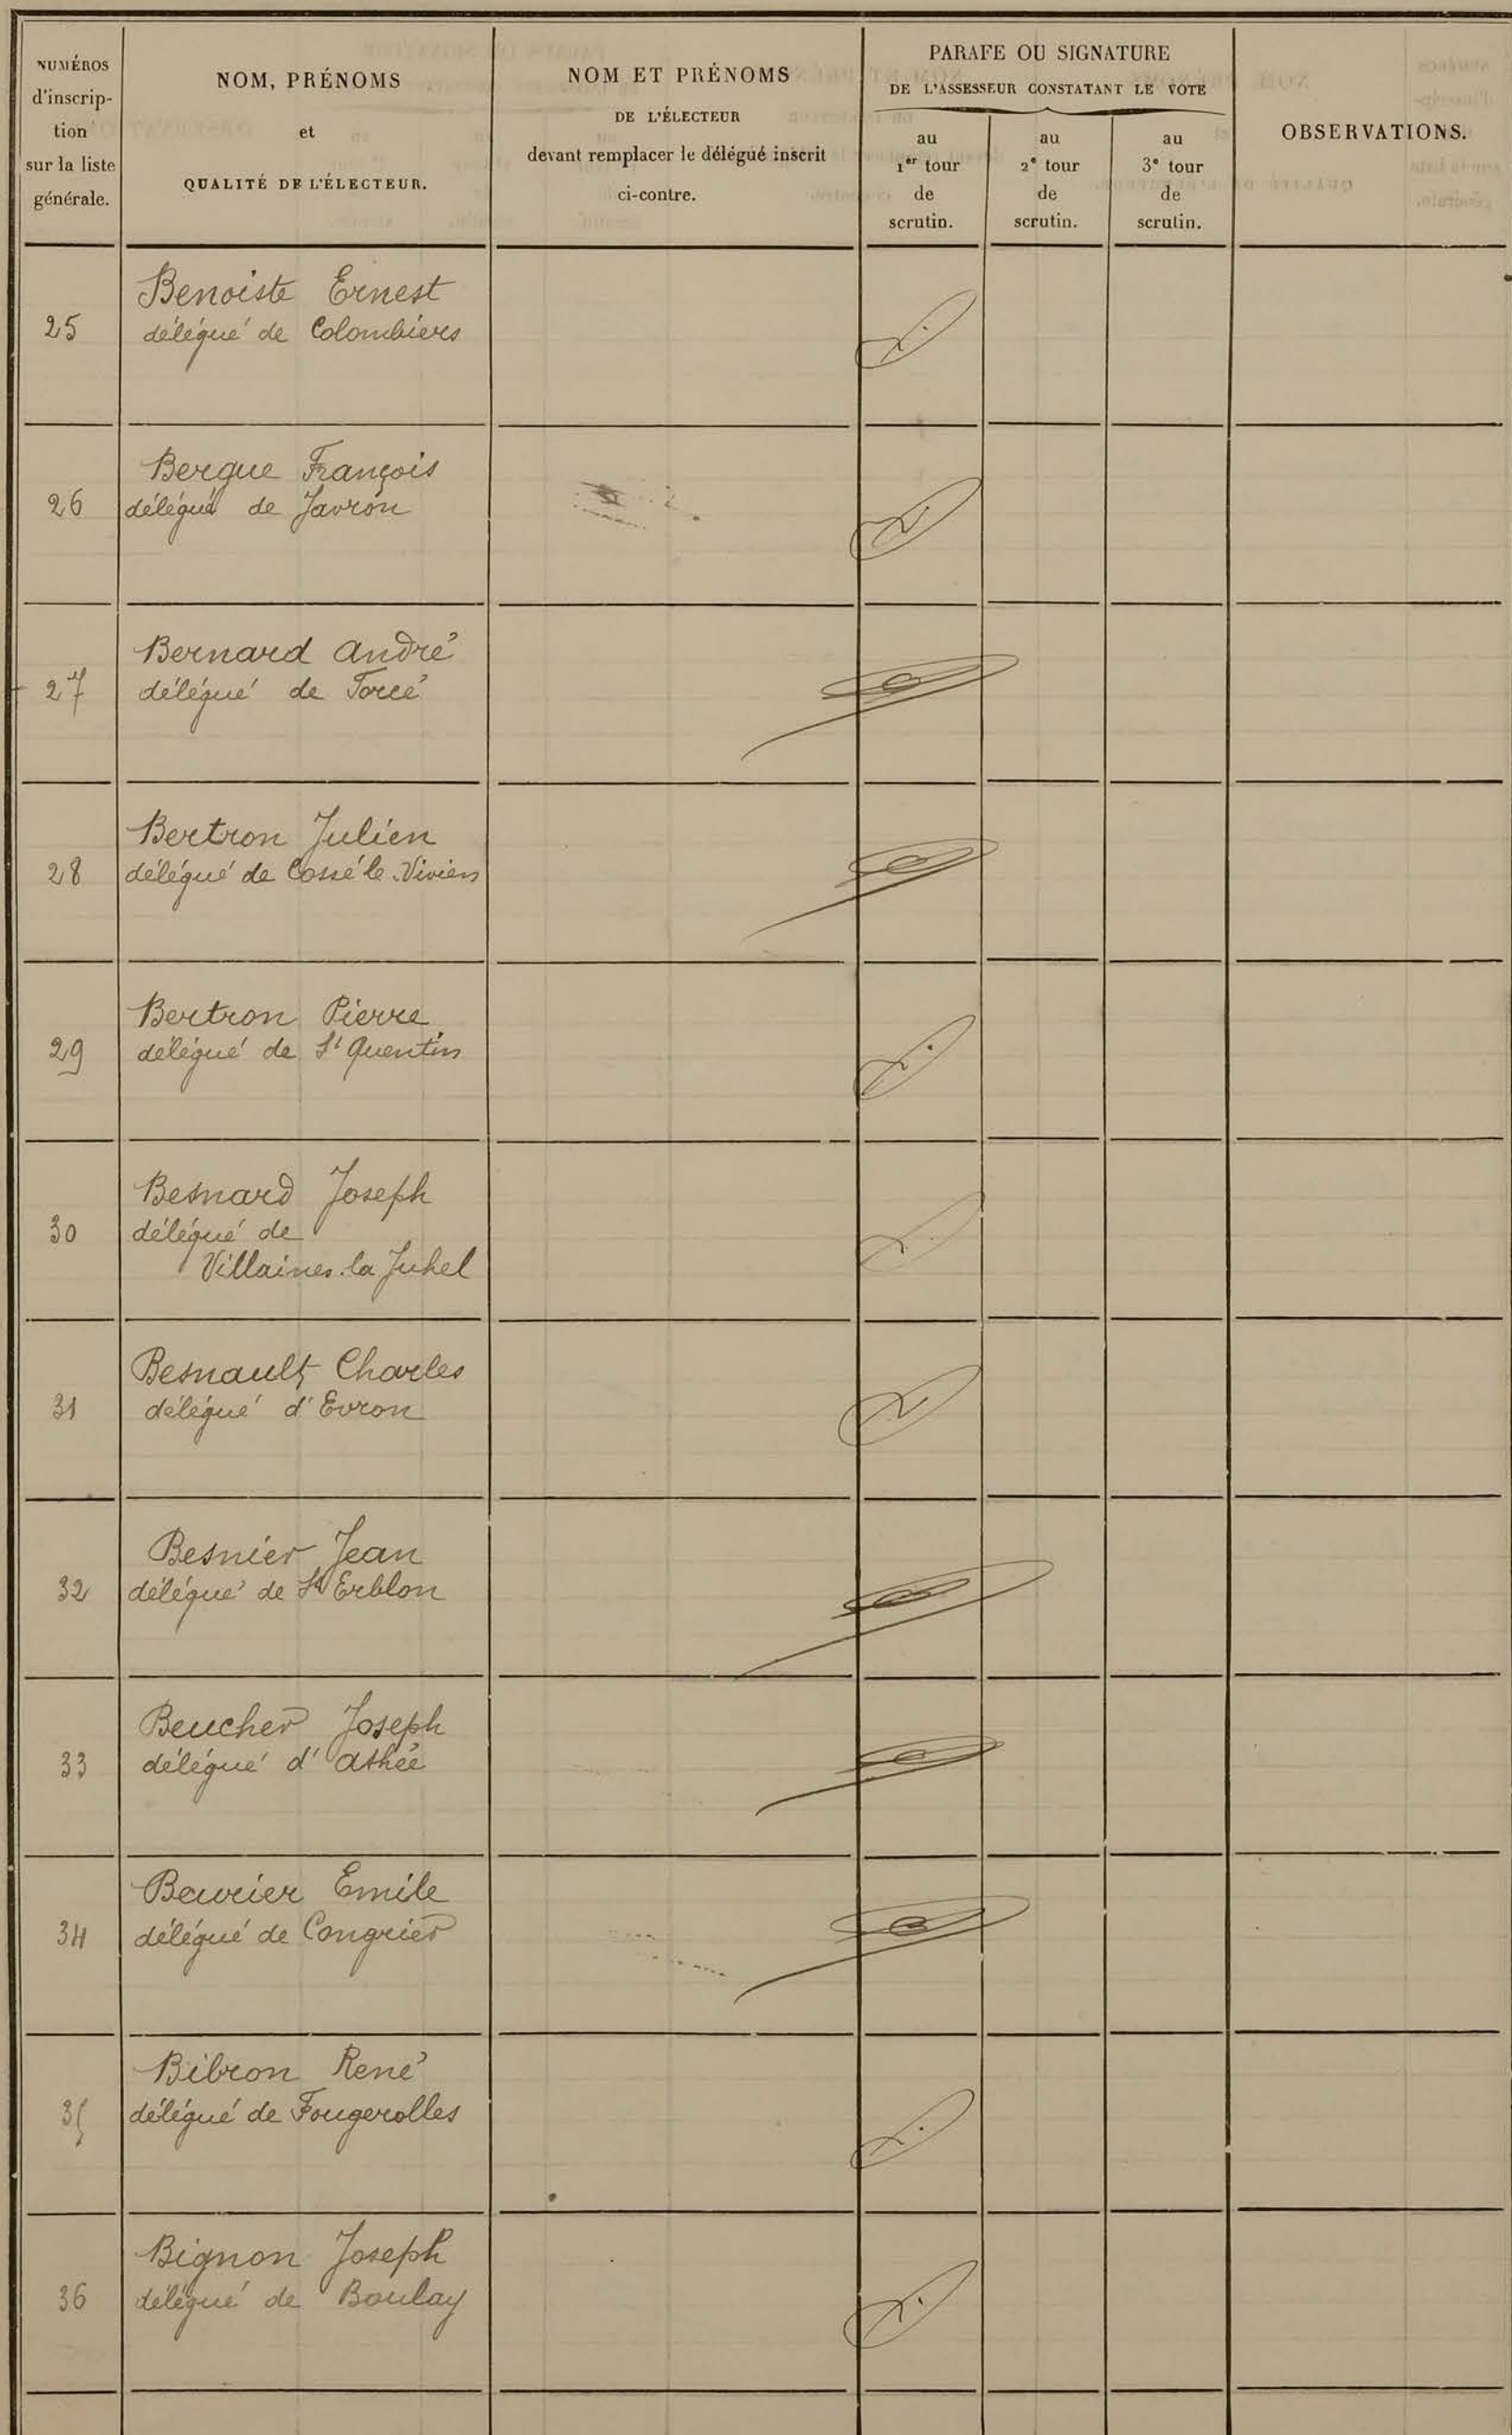 NUMÉROS
d'inscrip-
tion
sur la liste
générale.
NOM, PRÉNOMS
et
QUALITÉ DE L'ÉLECTEUR.
NOM ET PRÉNOMS
DE L'ÉLECTEUR
devant remplacer le délégué inscrit
ci-contre.
PARAFE OU SIGNATURE
DE L'ASSESSEUR CONSTATANT LE VOTE
au
1er tour
de
scrutin.
au
2e tour
de
scrutin.
au
3e tour
de
scrutin.
OBSERVATIONS.
Benoiste Ernest
25 délégué de Colombiers
Bergue François
26 délégué de Javron
Bernard André
27 délégué de Torcé
Bertron Julien
28 délégué de Cossé le Vivien
Bertron Pierre
29 délégué de St Quentin
Besnard Joseph
30 délégué de
Villaines la Juhel
Besnault Charles
31 délégué d'Evron
Besnier Jean
32 délégué de St Erblon
Beucher Joseph
33 délégué d'Athée
Beuvrier Emile
34 délégué de Congrier
Bibron René
35 délégué de Fougerolles
Bignon Joseph
36 délégué de Boulay